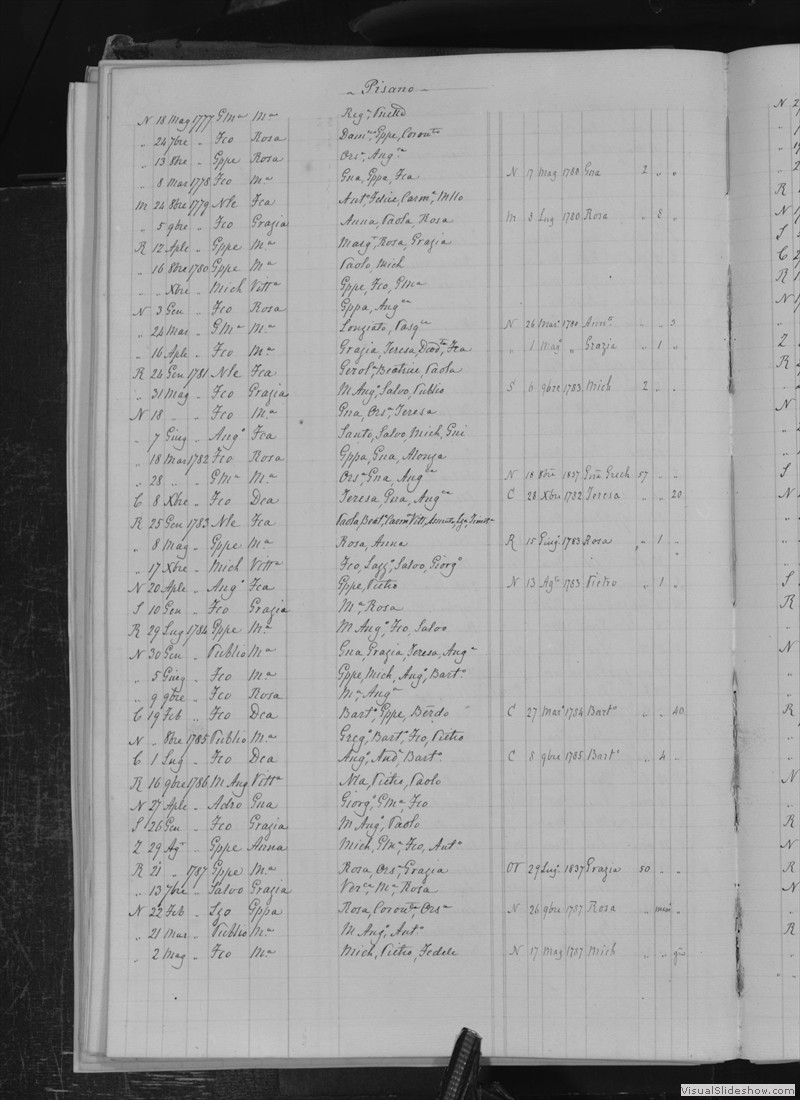 Pisano
N 18 Mag 1777 Gma Ma Reg
" 24 7bre " Fco Rosa Dama, Gppe, Coronta
" 13 8bre " Gppe Rosa Orsa, Anga
" 8 Mar 1778 Fco Ma Gna, Gppa, Fca N 17 Mag 1780 Gna 2 " "
M 24 8bre 1779 Nle Fca Anta, Felice, Carma, Mllo
" 5 9bre " Fco Grazia Anna, Paola, Rosa M 8 Lug 1780 Rosa " 8 "
R 12 Aple " Gppe Ma Marga, Rosa, Grazia
" 16 8bre 1780 Gppe Ma Paolo, Mich
" " Xbre " Mich Vitta Gppe, Fco, Gma
N 3 Gen " Fco Rosa Gppa, Anga
" 24 Mar " Gma Ma Pasqa N 26 Mar 1780 " " 3
" 16 Aple " Fco Ma Grazia, Teresa, Fca " 1 Mag " Grazia " 1 "
R 24 Gen 1781 Nle Fca Gerola, Beatrice, Paola
" 31 Mag " Fco Grazia M Anga, Salvo, Publio S 6 9bre 1783 Mich 2 " "
N 18 " " Fco Ma Gna, Orsa, Teresa
" 7 Giug " Ango Fca Santo, Salvo, Mich, Gni
" 18 Mar 1782 Fco Rosa Gppa, Gna, Alonza
" 28 " " Gma Ma Orsa, Gna, Anga N 18 8bre 1837 Gna Grech 57 " "
C 8 Xbre " Fco Dca Teresa, Gna, Anga C 28 Xbre 1782 Teresa " " 20
R 25 Gen 1783 Nle Fca Paola, Beata, Carma, Vitt,
" 8 Mag " Gppe Ma Rosa, Anna R 15 Giug 1783 Rosa " 1 "
" 17 Xbre " Mich Vitta Fco, Lazzo, Salvo, Giorgo
N 20 Aple " Ango Fca Gppe, Pietro N 13 Ago 1783 Pietro " 1 "
S 10 Gen " Fco Grazia Ma, Rosa
R 29 Lug 1784 Gppe Ma M Ango, Fco, Salvo
N 30 Gen " Publio Ma Gna, Grazia, Teresa, Anga
" 5 Giug " Fco Ma Gppe, Mich, Ango, Barto
" 9 9bre " Fco Rosa Ma, Anga
C 19 Feb " Fco Dca Barto, Gppe, Berdo C 27 Mar 1784 Barto " " 40
N " 8bre 1785 Publio Ma Grego, Barto, Fco, Pietro
C 1 Lug " Fco Dca Ango, Anda, Barto C 8 9bre 1785 Barto " 4 "
R 16 9bre 1786 M Ang Vitta Nla, Pietro, Paolo
N 27 Aple " Adro Gna Giorgo, Gma, Fco
S 26 Gen " Fco Grazia M Ango, Paolo
Z 29 Ago " Gppe Anna Mich, Fco, Anto
R 21 " 1787 Gppe Ma Rosa, Orsa, Grazia OV 29 Lug 1837 Grazia 50 " "
" 13 7bre " Salvo Grazia Verca, Ma, Rosa
N 22 Feb " Lzo Gppa Rosa, Coronta, Orsa N 26 9bre 1787 Rosa "
" 21 Mar " Publio Ma M Ango, Anto
" 2 Mag " Fco Ma Mich, Pietro, Fedele N 17 Mag 1787 Mich " "
VisualSlideshow.com